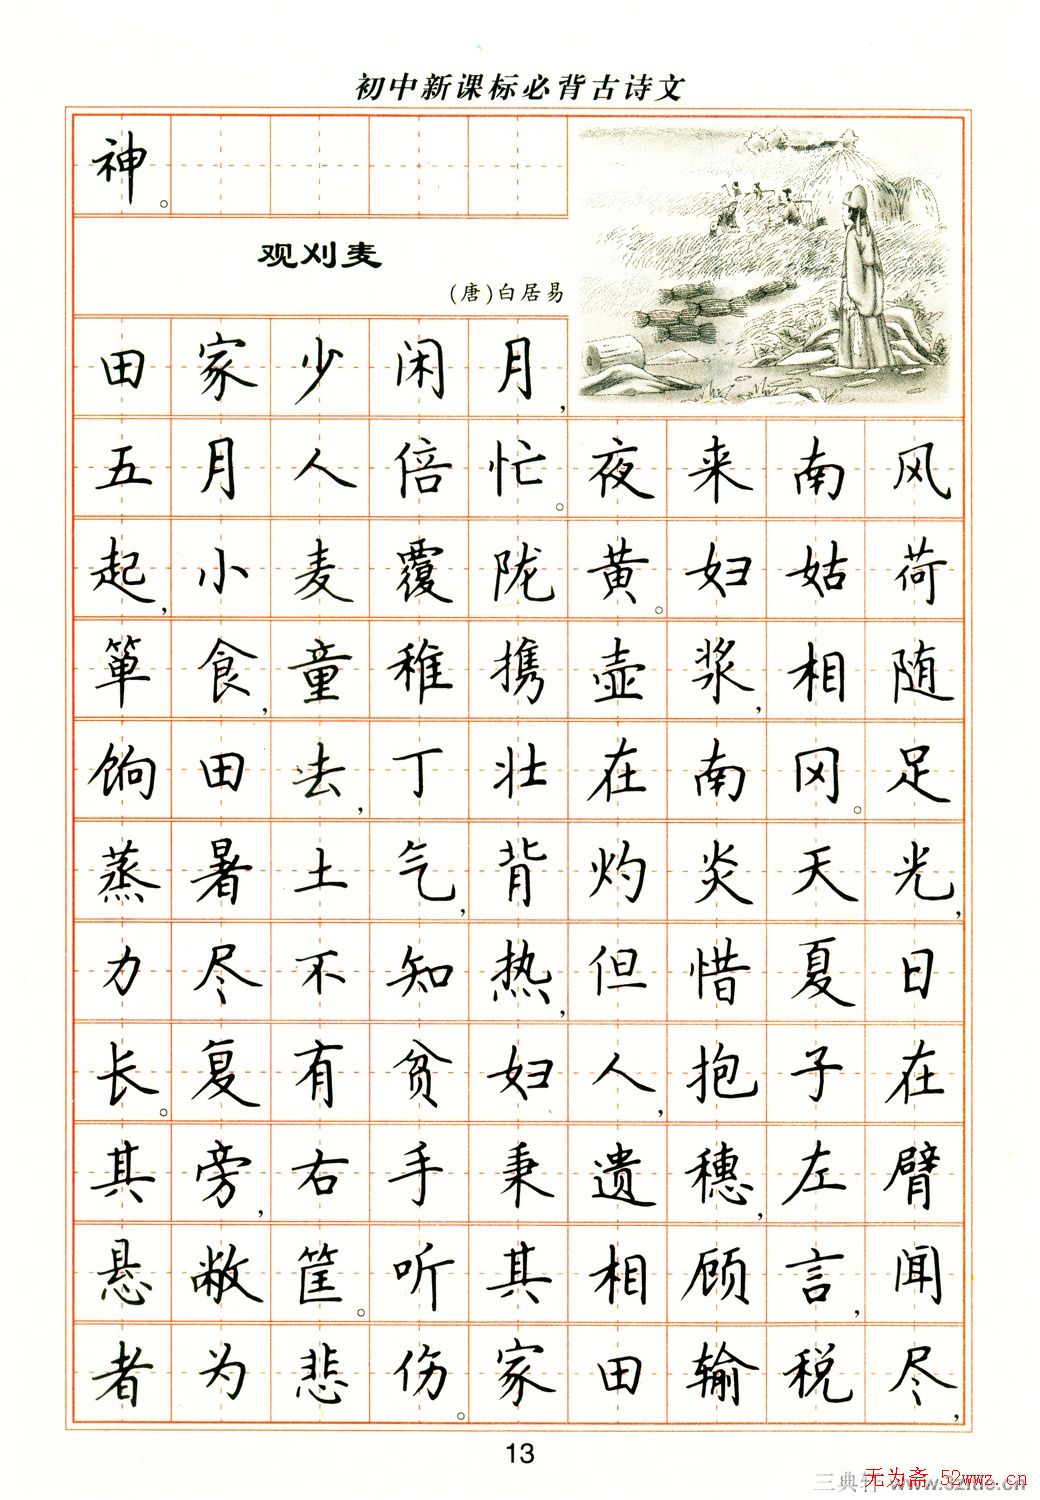 初中新课标必背古诗文
神。
观刈麦
(唐)白居易
田家少闲月,
五月人倍忙。夜来南风
起,小麦覆陇黄。妇姑荷
箪食,童稚携壶浆,相随
饷田去,丁壮在南冈。足
蒸暑土气,背灼炎天光,
力尽不知热,但惜夏日
长。复有贫妇人,抱子在
其旁,右手秉遗穗,左臂
悬敝筐。听其相顾言,闻
者为悲伤。家田输税尽,
13
三典轩
无为斋.52wwz.cn